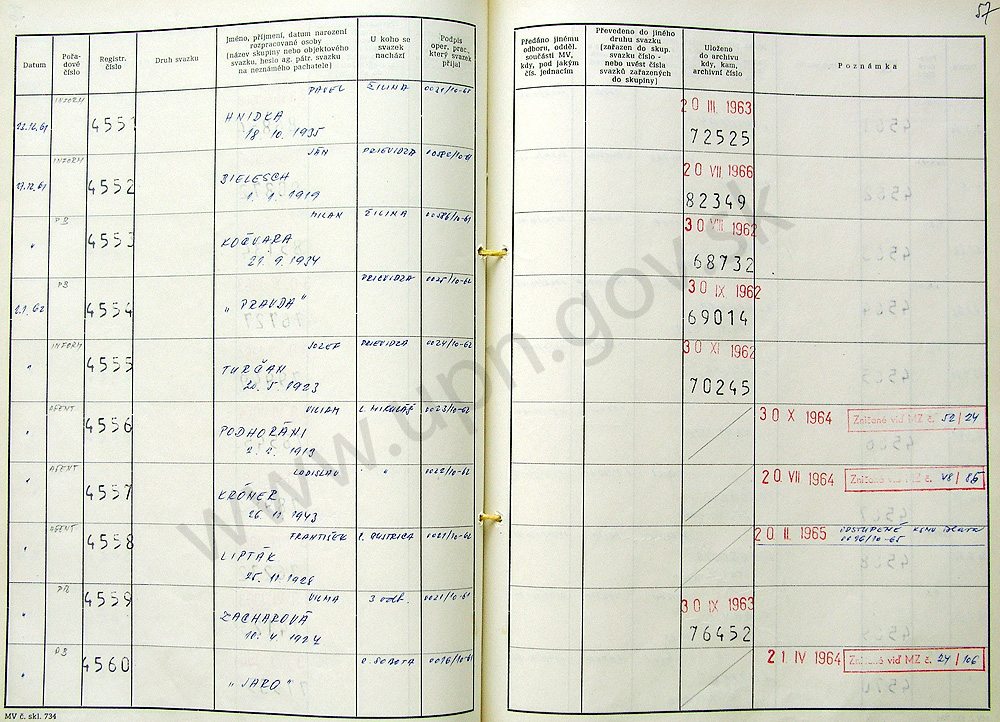 57
Datum
Pořa-
dové
číslo
Registr.
číslo
Druh svazku
Jméno, příjmení, datum narození
rozpracované osoby
(název skupiny nebo objektového
svazku, heslo ag. pátr. svazku
na neznámého pachatele)
U koho se
svazek
nachází
Podpis
oper. prac.,
který svazek
přijal
Předáno jinému
odboru, odděl.
součásti MV,
kdy, pod jakým
čís. jednacím
Převedeno do jiného
druhu svazku
(zařazen do skup.
svazku číslo -
nebo uvést čísla
svazků zařazených
do skupiny)
Uloženo
do archivu
kdy, kam,
archivní číslo
Poznámka
INFORM
4551
PAVEL
HNIDKA
18. 10. 1935
ŽILINA
20 III. 1963
72525
INFORM
4552
JÁN
BIELESCH
1919
PRIEVIDZA
20 VII 1966
82349
PS
4553
MILAN
KOČVARA
21. 9. 1934
ŽILINA
30 VIII 1962
68732
2.1. 62
PS
4554
"PRAVDA"
PRIEVIDZA
0025/10-62
30 IX 1962
69014
"
INFORM
4555
JOZEF
TURČAN
20. 5. 1923
PRIEVIDZA
0024/10-62
30 XI 1962
70245
"
AGENT
4556
VILIAM
PODHORÁNI
2. 2. 1919
L. MIKULÁŠ
0023/10-62
30 X 1964
Zničené viď MZ č. 52/24
"
AGENT
4557
LADISLAV
KRÖMER
26. 11. 1943
"
0022/10-62
20 VII 1964
Zničené viď MZ č. 48/86
"
AGENT
4558
FRANTIŠEK
LIPTÁK
25. 11. 1928
B. BYSTRICA
0021/10-62
20 II. 1965
ODSTÚPENÉ
"
4559
VILMA
ZACHAROVÁ
10. V. 1924
3 odb.
0021/10-61
30 IX 1963
76452
"
PS
4560
"JARO"
R. SOBOTA
0016/10-61
21. IV 1964
Zničené viď MZ č. 24/106
MV č. skl. 734
www.upn.gov.sk